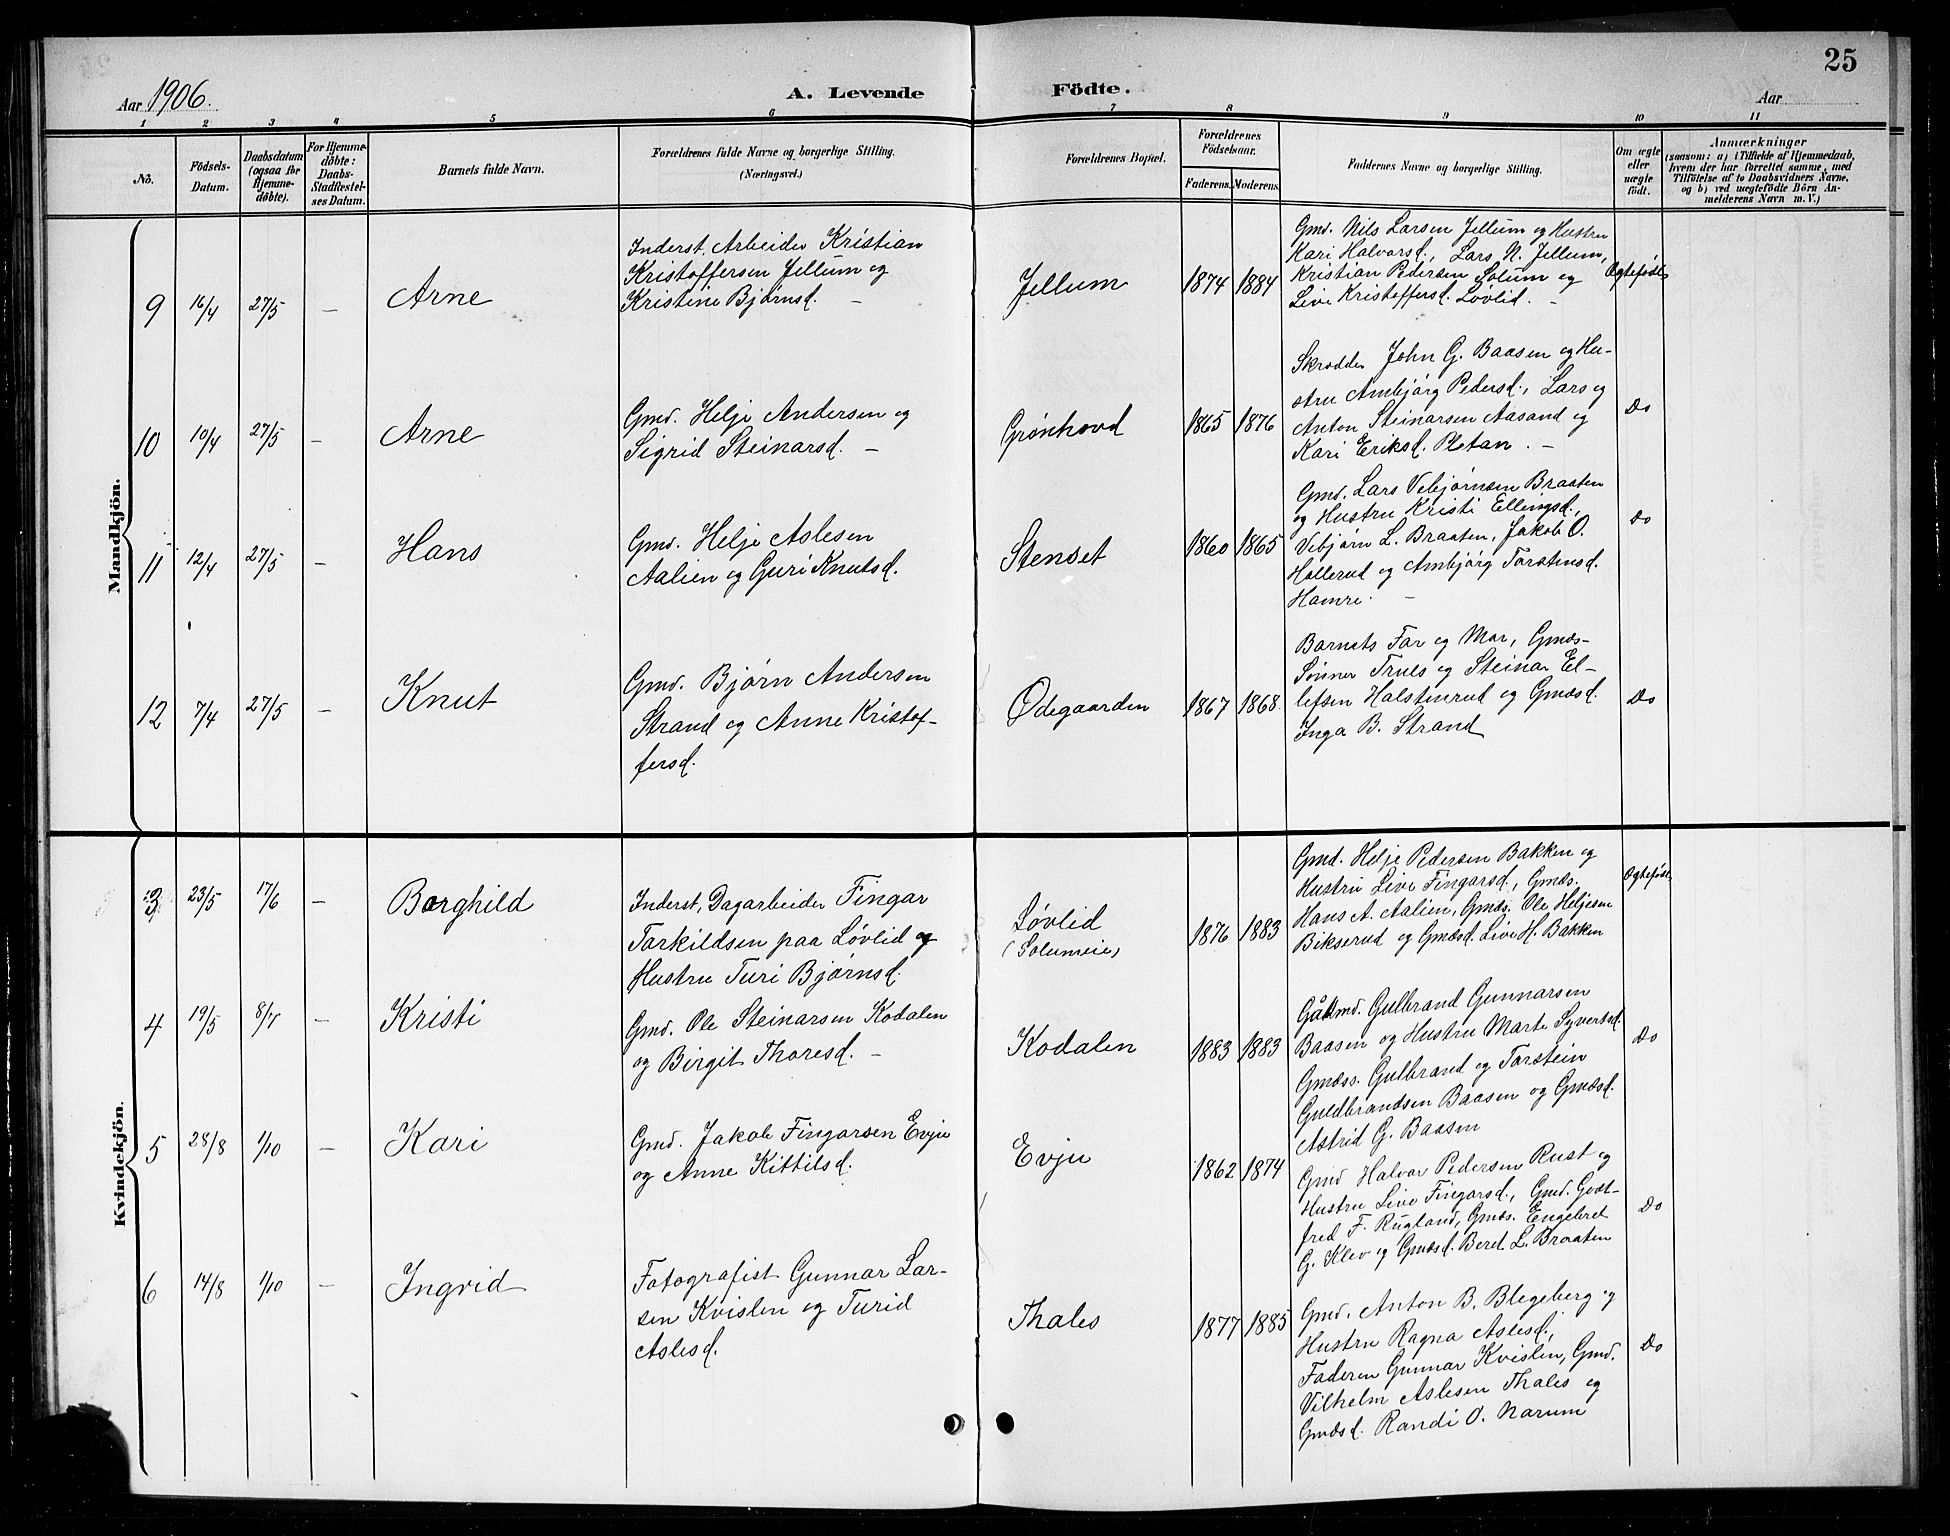 25
Aar 1906.
A. Levende Födte.
Aar
1 2 3 4 5 6 7 8 9 10 11
No.
Födsels-
Datum.
Daabsdatum
(ogsaa for
Hjemme-
døbte).
For Hjemme-
døbte:
Daabs-
Stadfæstel-
ses Datum.
Barnets fulde Navn.
Forældrenes fulde Navne og borgerlige Stilling.
(Næringsvei.)
Forældrenes Bopæl.
Forældrenes
Födselsaar.
Faderens. Moderens.
Faddernes Navne og borgerlige Stilling.
Om ægte
eller
uægte
födt.
Anmærkninger
(saasom: a) i Tilfælde af Hjemmedaab,
hvem der har forrettet samme, med
Tilföielse af to Daabsvidners Navne.
og b) ved uægtefödte Börn An-
melderens Navn m. V.)
Mandkjön.
9 16/4 27/5 — Arne
Inderst, Arbeider Kristian
Kristoffersen Jellum og
Kristine Bjørnsd. —
Jellum 1874 1884
Gmd. Nils Larsen Jellum og Hustru
Kari Halvorsd., Lars N. Jellum,
Kristian Pedersen Solum og
Live Kristoffersd. Løvlid. —
Ægtefødt
10 10/4 27/5 — Arne
Gmd. Helje Andersen og
Sigrid Steinarsd. —
Grønhovd 1865 1876
Skrædder John G. Baasen og Hu-
stru Ambjørg Pedersd., Lars og
Anton Steinarsen Aasand og
Kari Eriksd. Pletan. —
Do
11 12/4 27/5 — Hans
Gmd. Helje Aslesen
Aalien og Guri Knutsd.
Stenset 1860 1865
Gmd. Lars Vebjørnsen Braaten
og Hustru Kristi Ellingsd.,
Vebjørn L. Braaten, Jakob O.
Hollerud og Ambjørg Torstensd.
Hamre. —
Do
12 7/4 27/5 — Knut
Gmd. Bjørn Andersen
Strand og Anne Kristof-
fersd.
Ødegaarden 1867 1868.
Barnets Far og Mor, Gmds-
Sønner Truls og Steinar El-
lefsen Halstenrud og Gmdsd.
Inga B. Strand
Do
Kvindekjön.
3 23/5 17/6 — Borghild
Inderst, Dagarbeider Fingar
Torkildsen paa Løvlid og
Hustru Turi Bjørnsd.
Løvlid
(Solumeie)
1876 1883
Gmd. Helje Pedersen Bakken og
Hustru Live Fingarsd., Gmds.
Hans A. Aalien, Gmds. Ole Heljesen
Bikserud og Gmdsd. Live H. Bakken
Ægtefødt.
4 19/5 8/7 — Kristi
Gmd. Ole Steinarsen Kodalen
og Birgit Thoresd. —
Kodalen 1883 1883
Gulbrand Gunnarsen
Baasen og Hustru Marte Syvertsd.
Gmdss. Gulbrand og Torstein
Guldbrandsen Baasen og Gmdsd.
Astrid G. Baasen
Do
5 28/8 1/10 — Kari
Gmd. Jakob Fingarsen Evju
og Anne Kittilsd.
Evju 1862 1874
Gmd Halvor Pedersen Rust og
Hustru Live Fingarsd., Gmd. Godt-
fred F. Rugland, Gmds. Engebret
G. Klev og Gmdsd. Beret L. Braaten
Do
6 14/8 1/10 — Ingrid
Fotografist Gunnar Lar-
sen Kvislen og Turid
Aslesd.
Thales 1877 1885
Gmd. Anton B. Blegeberg og
Hustru Ragna Aslesd.,
Faderen Gunnar Kvislen, Gmd.
Vilhelm Aslesen Thales og
Gmdsd. Randi O. Narum
Do